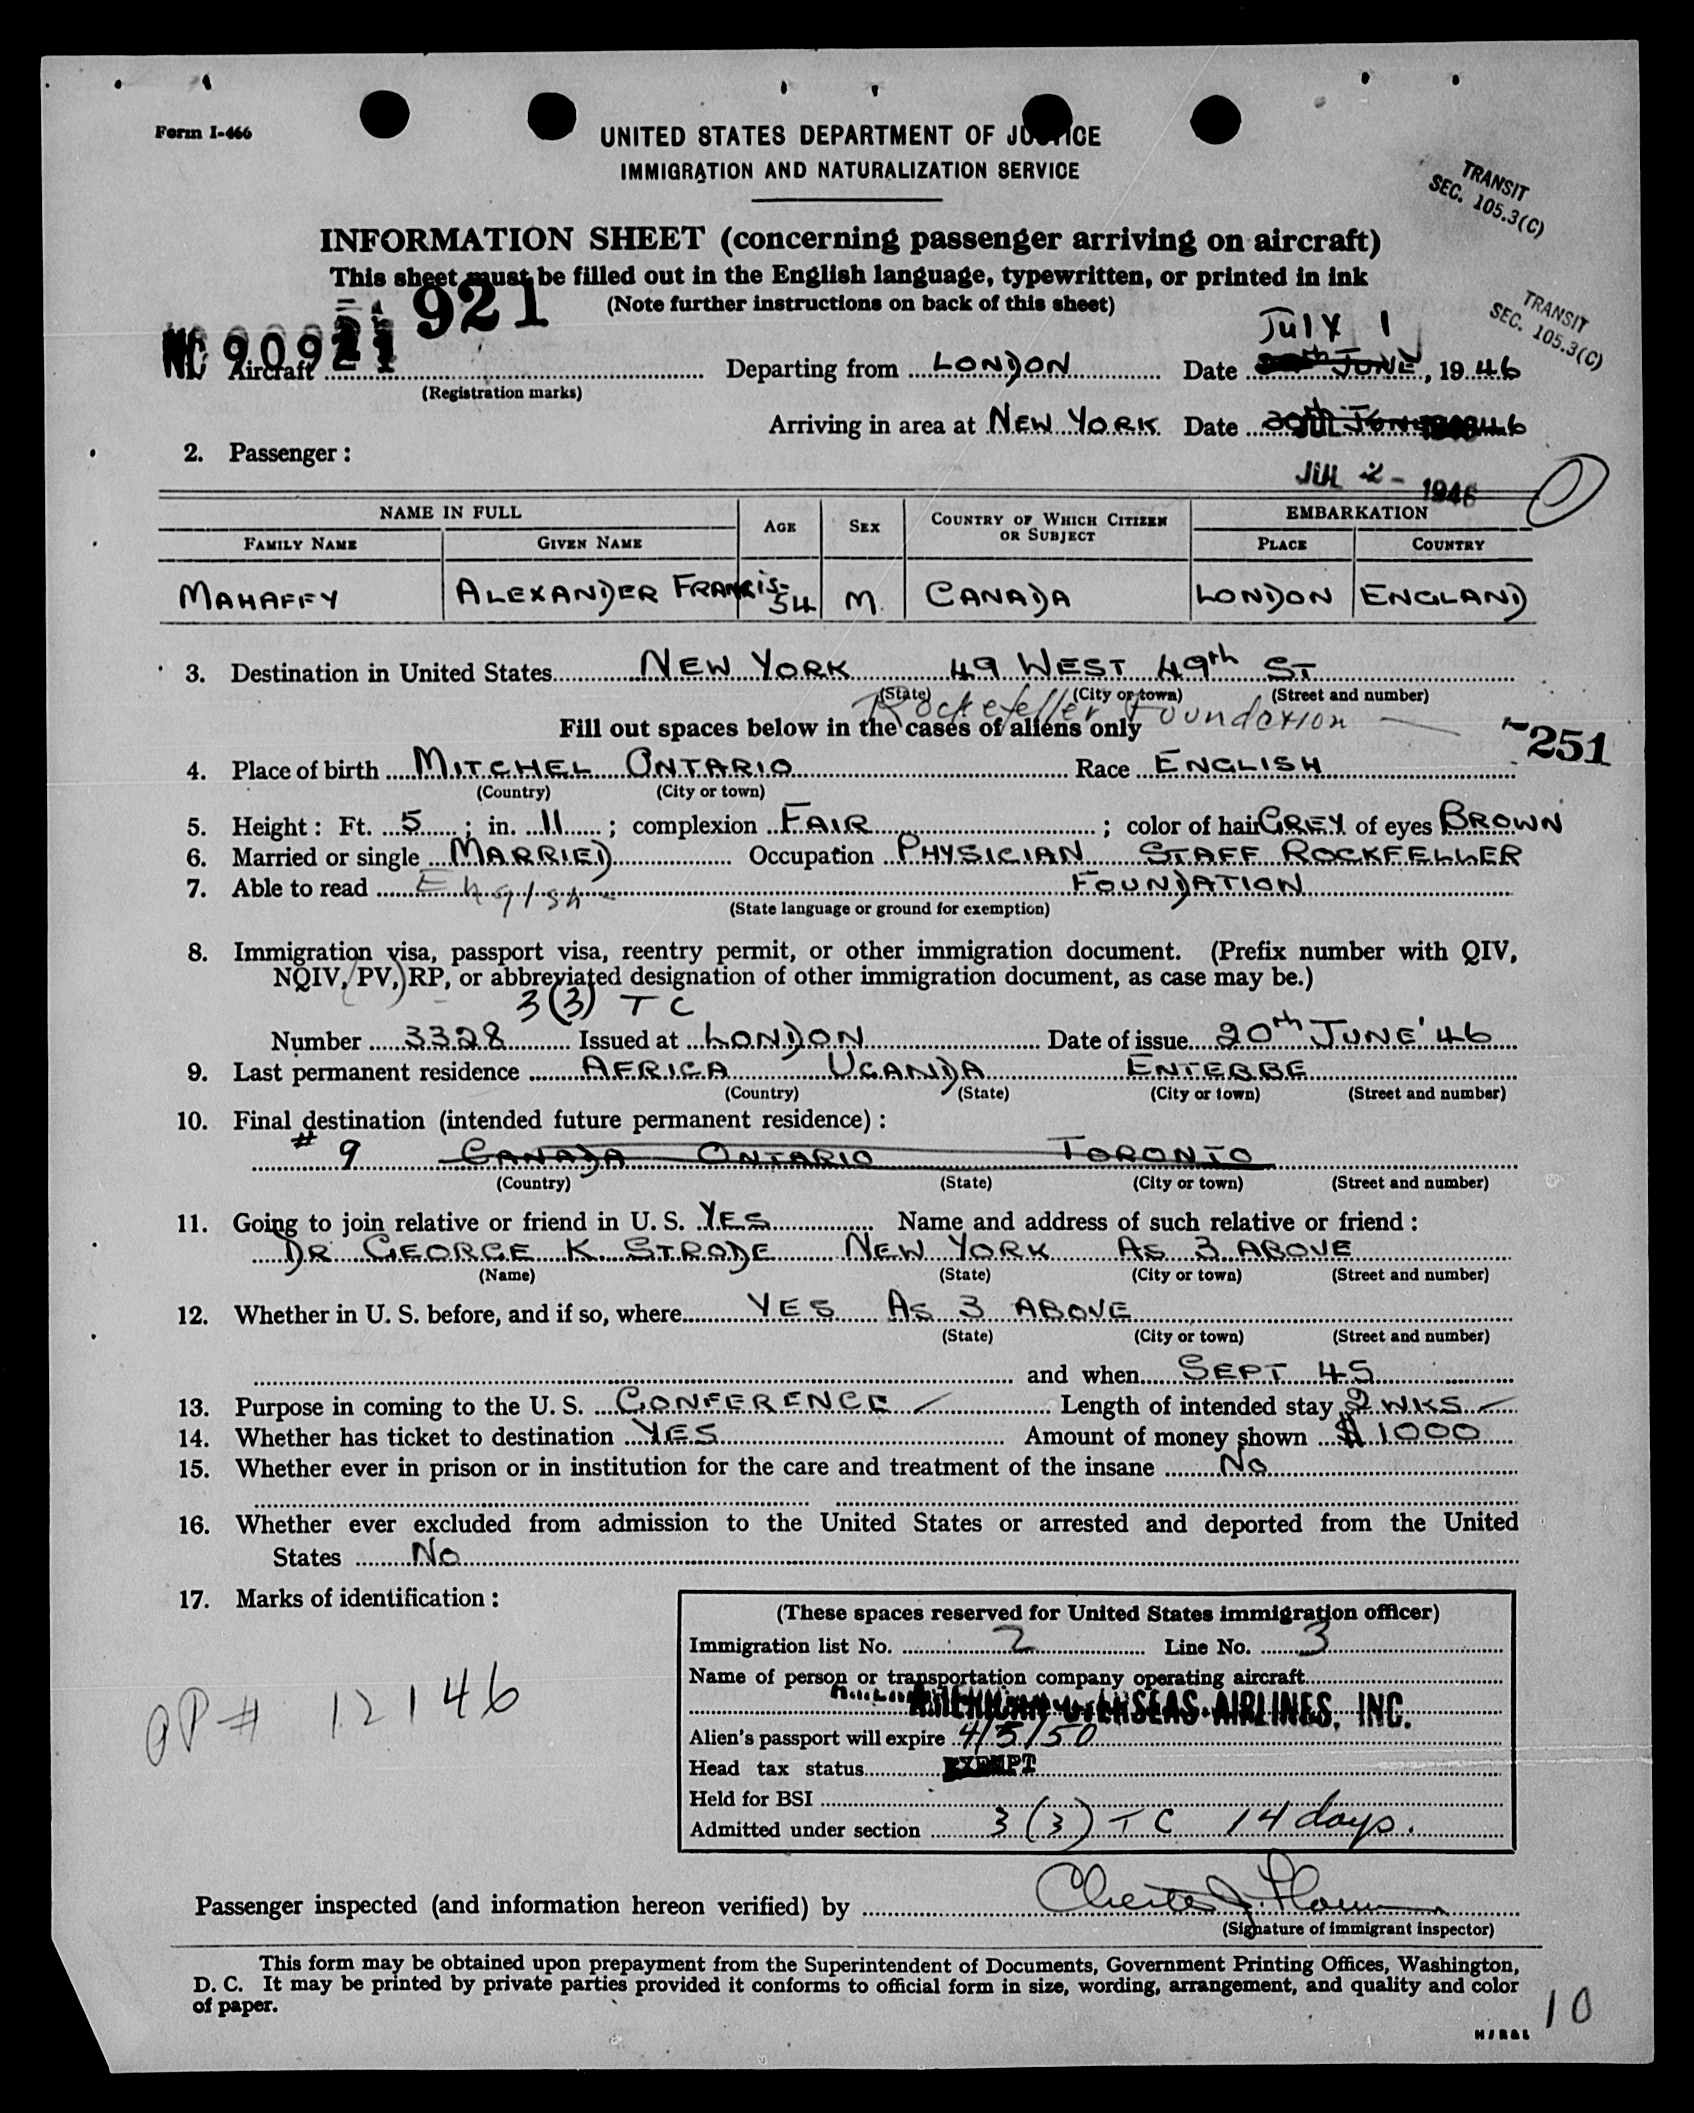 Form I-466
UNITED STATES DEPARTMENT OF JUSTICE
IMMIGRATION AND NATURALIZATION SERVICE
TRANSIT
SEC. 105.3(C)
INFORMATION SHEET (concerning passenger arriving on aircraft)
This sheet must be filled out in the English language, typewritten, or printed in ink
(Note further instructions on back of this sheet)
921
TRANSIT
SEC. 105.3(C)
July 1
NC 90921
Aircraft Departing from LONDON Date JUNE, 1946
(Registration marks)
Arriving in area at NEW YORK Date 46
2. Passenger:
JUL 2 - 1946
NAME IN FULL AGE SEX COUNTRY OF WHICH CITIZEN OR SUBJECT EMBARKATION
FAMILY NAME GIVEN NAME PLACE COUNTRY
MAHAFFY ALEXANDER FRANCIS 54 M. CANADA LONDON ENGLAND
3. Destination in United States NEW YORK 49 WEST 49th ST
(State) (City or town) (Street and number)
Rockefeller Foundation
Fill out spaces below in the cases of aliens only
251
4. Place of birth MITCHEL ONTARIO Race ENGLISH
(Country) (City or town)
5. Height: Ft. 5; in. 11; complexion FAIR; color of hair GREY of eyes BROWN
6. Married or single MARRIED Occupation PHYSICIAN STAFF ROCKFELLER
7. Able to read English FOUNDATION
(State language or ground for exemption)
8. Immigration visa, passport visa, reentry permit, or other immigration document. (Prefix number with QIV,
NQIV, PV, RP, or abbreviated designation of other immigration document, as case may be.)
3(3) TC
Number 3328 Issued at LONDON Date of issue 20th JUNE '46
9. Last permanent residence AFRICA UGANDA ENTEBBE
(Country) (State) (City or town) (Street and number)
10. Final destination (intended future permanent residence):
# 9 CANADA ONTARIO TORONTO
(Country) (State) (City or town) (Street and number)
11. Going to join relative or friend in U. S. YES Name and address of such relative or friend:
DR GEORGE K STRODE NEW YORK AS 3 ABOVE
(Name) (State) (City or town) (Street and number)
12. Whether in U. S. before, and if so, where YES AS 3 ABOVE
(State) (City or town) (Street and number)
and when SEPT 45
13. Purpose in coming to the U. S. CONFERENCE Length of intended stay 2 WKS
14. Whether has ticket to destination YES Amount of money shown $1000
15. Whether ever in prison or in institution for the care and treatment of the insane No
16. Whether ever excluded from admission to the United States or arrested and deported from the United
States No
17. Marks of identification:
(These spaces reserved for United States immigration officer)
Immigration list No. 2 Line No. 3
Name of person or transportation company operating aircraft
AMERICAN OVERSEAS AIRLINES, INC.
Alien's passport will expire 4/5/50
Head tax status EXEMPT
Held for BSI
Admitted under section 3(3) TC 14 days.
PP# 12146
Passenger inspected (and information hereon verified) by
(Signature of immigrant inspector)
This form may be obtained upon prepayment from the Superintendent of Documents, Government Printing Offices, Washington,
D. C. It may be printed by private parties provided it conforms to official form in size, wording, arrangement, and quality and color
of paper.
10